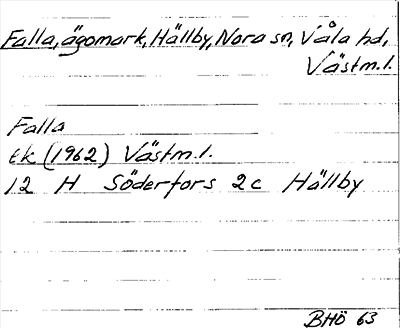 Falla, ägomark, Hällby, Nora sn, Våla hd,
Västm.l.
Falla
Ek (1962) Västm.l.
12 H Söderfors 2c Hällby
BHÖ 63